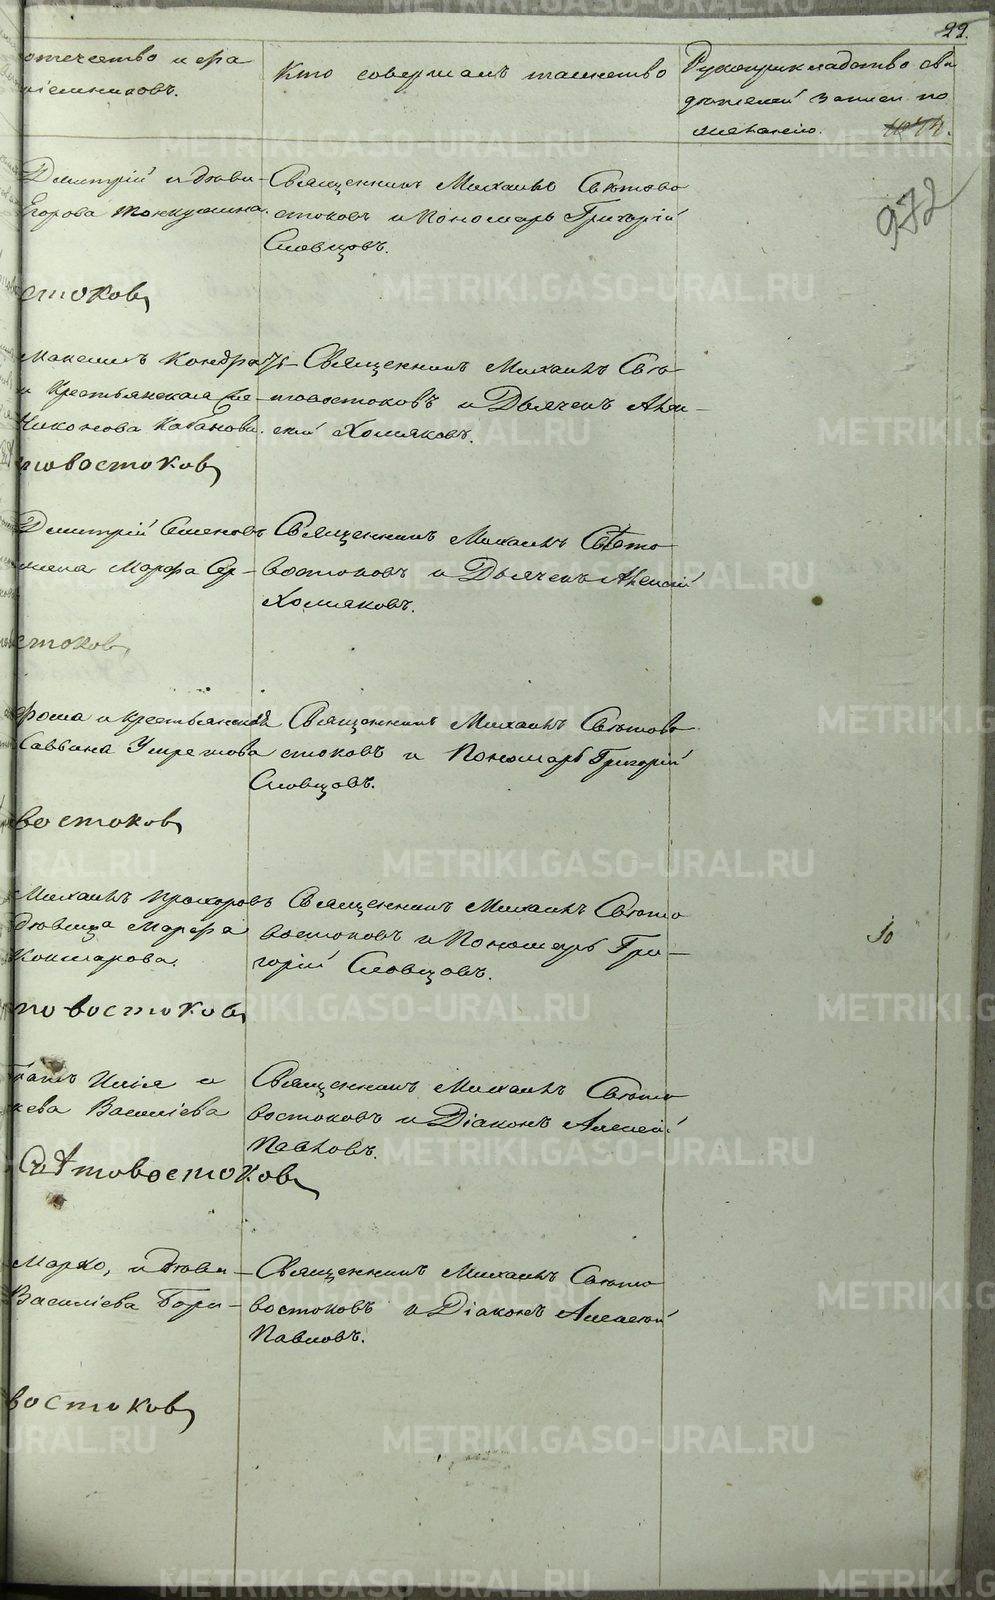 22.
отчество и фа
пріемниковъ.
Кто совершалъ таинство
Рукоприкладство сви
дѣтелей записи по
желанію.
972
Димитрій и дѣви-
Егорова
Священникъ Михаилъ Свѣтово
стоковъ и Пономарь Григорій
Словцовъ.
стоковъ
Максимъ Кондра
и Крестьянская
Никонова Кабанова.
Священникъ Михаилъ Свѣ-
товостоковъ и Дьячекъ Алек-
сѣй Хомяковъ.
товостоковъ
Димитрій Семеновъ
Марфа Сер-
Священникъ Михаилъ Свѣто
востоковъ и Дьячекъ Алексѣй
Хомяковъ.
стоковъ
Фома и крестьянская
Саввина
Священникъ Михаилъ Свѣтово
стоковъ и Пономарь Григорій
Словцовъ.
востоковъ
Михаилъ Прохоровъ
дѣвица Марфа
Священникъ Михаилъ Свѣто
востоковъ и Пономарь Гри-
горій Словцовъ.
10
товостоковъ
Илія и
Василіева
Священникъ Михаилъ Свѣто
востоковъ и Діаконъ Алексѣй
Павловъ.
Свѣтовостоковъ
Марко, и дѣви-
Василіева Бори-
Священникъ Михаилъ Свѣто
востоковъ и Діаконъ Алексѣй
Павловъ.
востоковъ
METRIKI.GASO-URAL.RU